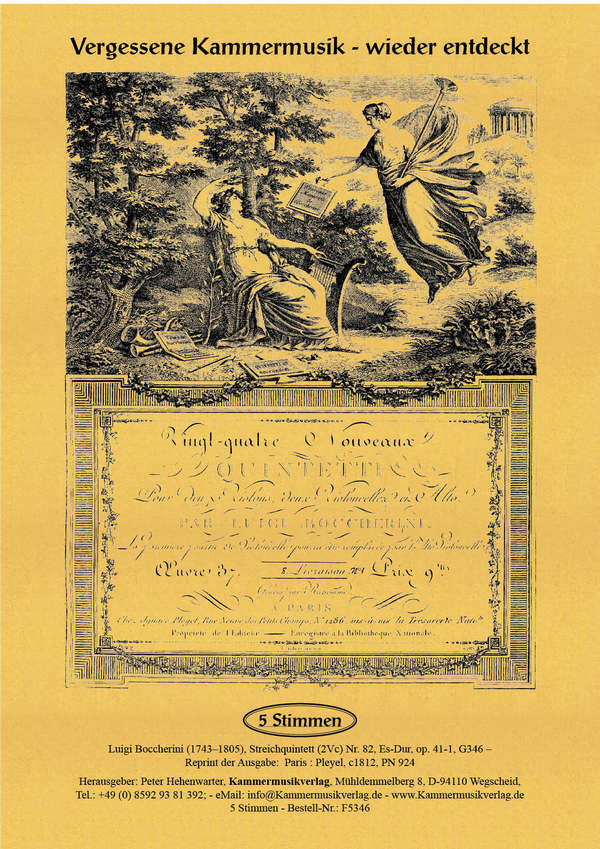 Vergessene Kammermusik - wieder entdeckt
Vingt-quatre Nouveaux
QUINTETTI
Pour deux Violons, deux Violoncelles et Alto.
PAR LUIGI BOCCHERINI.
Œuvre 37. 8 Livraison Prix 9
A PARIS
Chez Ignace Pleyel, Rue Neuve des Petits Champs, N.º 1286, vis-à-vis la Trésorerie Nat.le
Propriété de l'Editeur — Enregistré à la Bibliothèque Nationale.
5 Stimmen
Luigi Boccherini (1743–1805), Streichquintett (2Vc) Nr. 82, Es-Dur, op. 41-1, G346 –
Reprint der Ausgabe: Paris : Pleyel, c1812, PN 924
Herausgeber: Peter Hehenwarter, Kammermusikverlag, Mühldemmelberg 8, D-94110 Wegscheid,
Tel.: +49 (0) 8592 93 81 392; - eMail: info@Kammermusikverlag.de - www.Kammermusikverlag.de
5 Stimmen - Bestell-Nr.: F5346